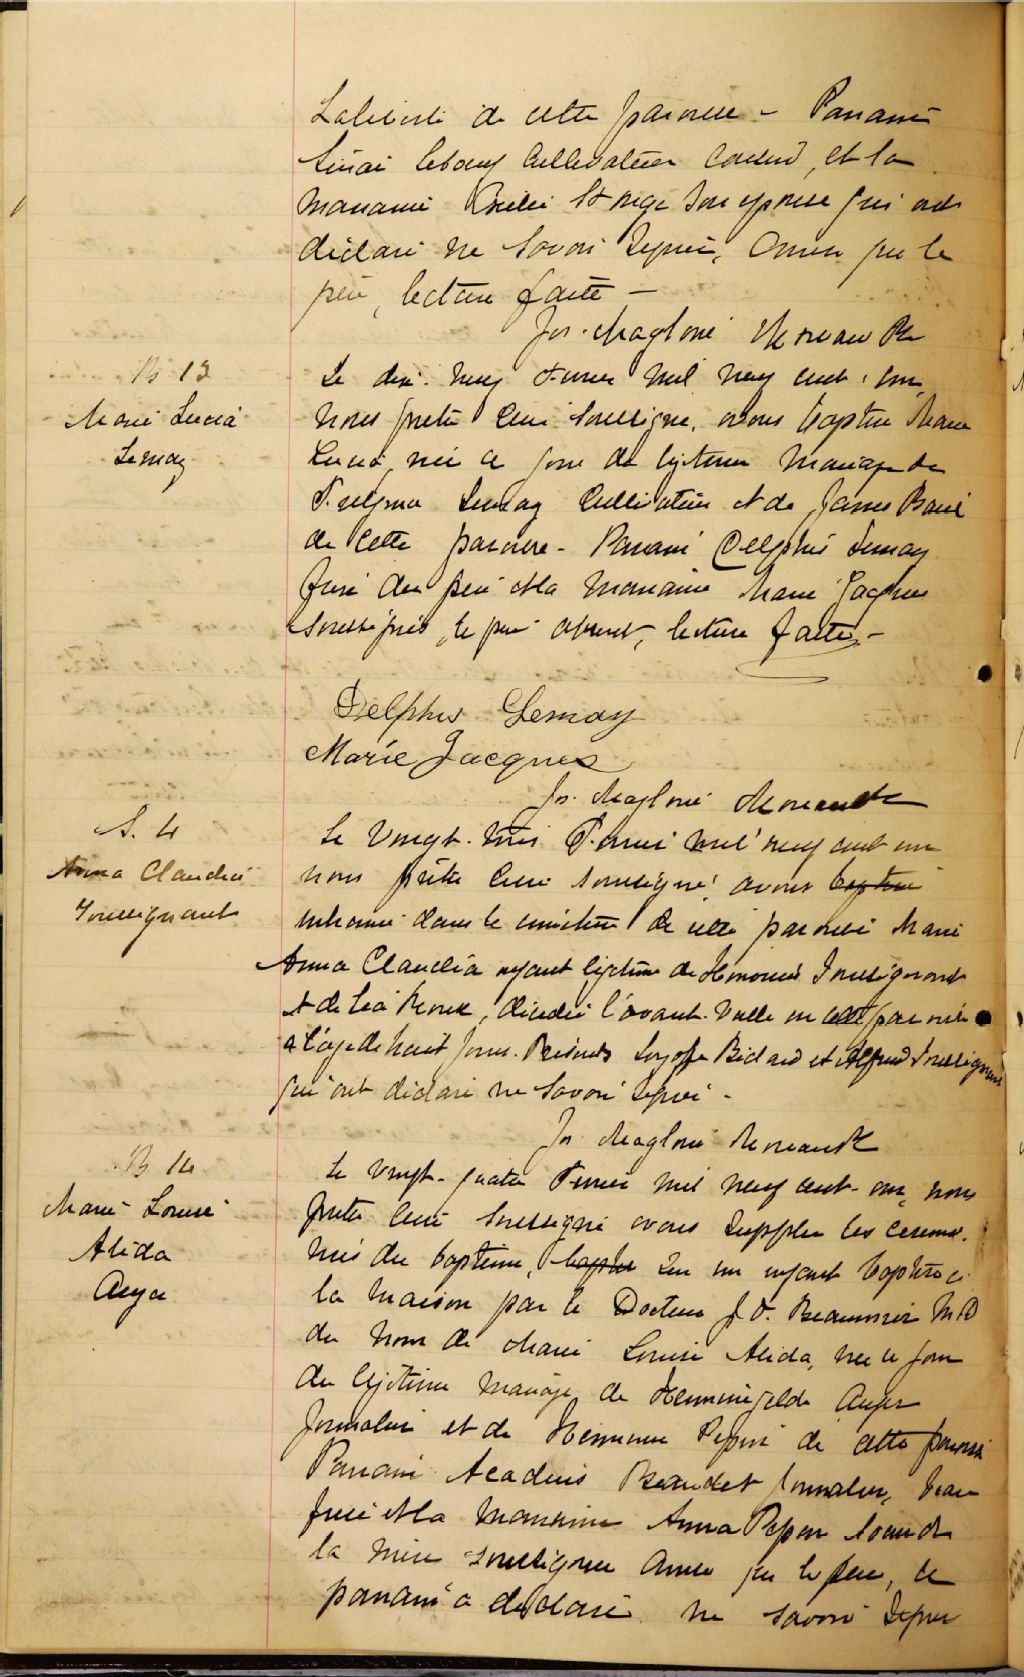 de cette paroisse - Parrain
Leboeuf Cultivateur cousin, et la
marraine son epouse qui ont
déclaré ne savoir signer, ainsi que le
père, lecture faite -
Jos. Magloire Moreau Ptr
B 13
Marie Lucia
Lemay
Le dix-neuf Fevrier mil neuf cent-onze,
nous prêtre Curé soussigné, avons baptisé Marie
Lucia, née ce jour du légitime mariage de
Lemay Cultivateur et de
de cette paroisse - Parrain Delphis Lemay
du père et la marraine Marie Jacques
soussignés, le père absent, lecture faite, -
Delphis Lemay
Marie Jacques
Jos. Magloire Moreau Ptr
S. 4
Anna Claudia
Toussignant
Le Vingt-trois Fevrier mil neuf cent onze
nous prêtre Curé soussigné, avons baptisé
inhumé dans le cimetière de cette paroisse Marie
Anna Claudia enfant légitime de Honorius Toussignant
et de Léa décédée l'avant-veille en cette paroisse
à l'âge de huit jours. Présents Bédard et Alfred Toussignant
qui ont déclaré ne savoir signer -
Jos Magloire Moreau Ptr
B 14
Marie Louise
Alida
Auger
Le vingt-quatre Fevrier mil neuf cent-onze, nous
prêtre Curé soussigné avons suppléé les cérémo-
nies du baptême, baptisé sur un enfant baptisé à
la maison par le Docteur J. O. MD
du nom de Marie Louise Alida, née ce jour
du légitime mariage de Herménégilde Auger
journalier et de Pepin de cette paroisse
Parrain Beaudet journalier, beau
frère et la marraine Anna Pepin soeur de
la mère soussignée ainsi que le père, le
parrain a déclaré ne savoir signer